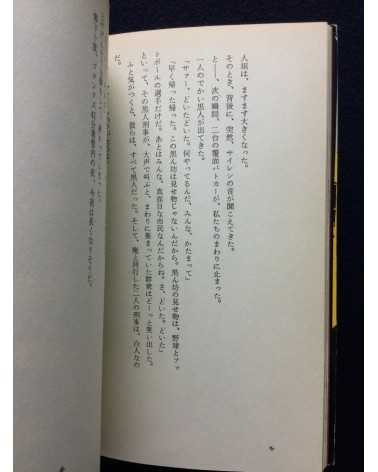 人垣は、ますます大きくなった。
そのとき、背後に、突然、サイレンの音が聞こえてきた。
と――、次の瞬間、二台の覆面パトカーが、私たちのまわりに止まった。
一人のでかい黒人が出てきた。
「サァー、どいたどいた。何やってるんだ、みんな、かたまって」
「早く帰った帰った。この黒ん坊は見せ物じゃないんだから。黒ん坊の見せ物は、野球とフッ
トボールの選手だけだ。あとはみんな、真面目な市民なんだからね。さ、どいた。どいた」
って、その黒人刑事が、大声で叫ぶと、まわりに集まっていた群衆はどーっと笑い出した。
ふと気がつくと、彼らは、すべて黒人だった。そして、俺と同行した二人の刑事は、白人なの
だ。